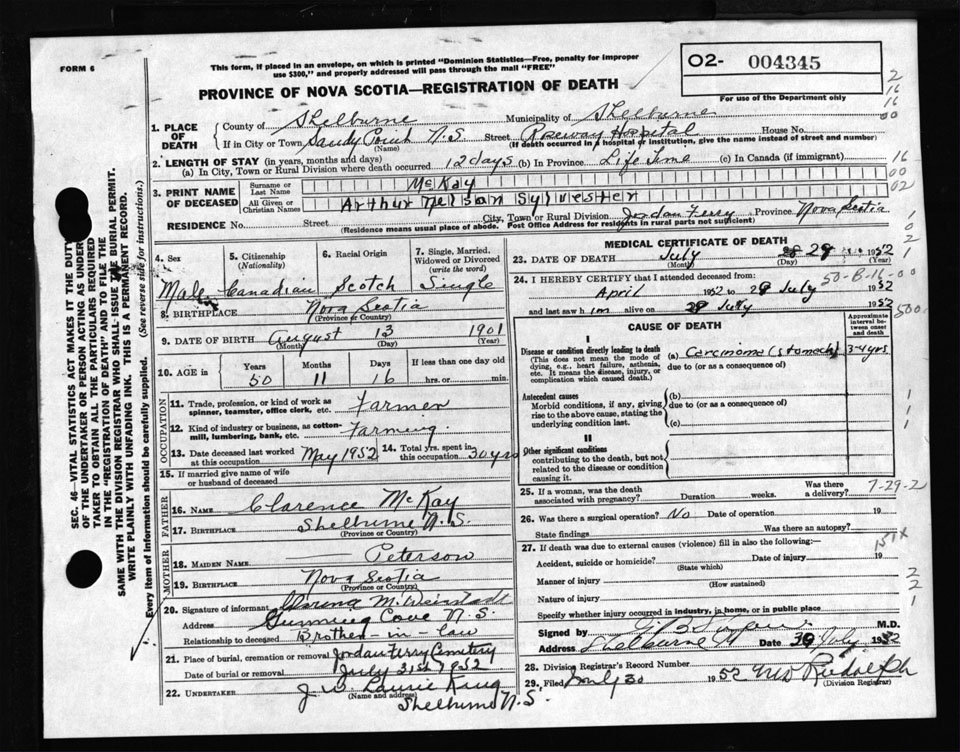 FORM 6
This form, if placed in an envelope, on which is printed "Dominion Statistics—Free, penalty for improper
use $300," and properly addressed will pass through the mail "FREE"
PROVINCE OF NOVA SCOTIA—REGISTRATION OF DEATH
O2- 004345
For use of the Department only
2
16
16
00
1. PLACE OF DEATH
County of Shelburne Municipality of Shelburne
If in City or Town Sandy Point N.S. Street Roseway Hospital House No.
(Name) (If death occurred in a hospital or institution, give the name instead of street and number)
2. LENGTH OF STAY (in years, months and days)
(a) In City, Town or Rural Division where death occurred 12 days (b) In Province Life Time (c) In Canada (if immigrant)
16
00
02
3. PRINT NAME OF DECEASED
Surname or Last Name McKay
All Given or Christian Names Arthur Nelson Sylvester
RESIDENCE No. Street City, Town or Rural Division Jordan Ferry Province Nova Scotia
(Residence means usual place of abode. Post Office Address for residents in rural parts not sufficient)
4. Sex
Male
5. Citizenship (Nationality)
Canadian
6. Racial Origin
Scotch
7. Single, Married, Widowed or Divorced (write the word)
Single
8. BIRTHPLACE Nova Scotia
(Province or Country)
9. DATE OF BIRTH August 13 1901
(Month) (Day) (Year)
10. AGE in Years Months Days If less than one day old
50 11 16 hrs. or min.
OCCUPATION
11. Trade, profession, or kind of work as spinner, teamster, office clerk, etc. Farmer
12. Kind of industry or business, as cotton-mill, lumbering, bank, etc. Farming
13. Date deceased last worked at this occupation May 1952
14. Total yrs. spent in this occupation 30 yrs
15. If married give name of wife or husband of deceased
FATHER
16. NAME Clarence McKay
17. BIRTHPLACE Shelburne N.S.
(Province or Country)
MOTHER
18. MAIDEN NAME Peterson
19. BIRTHPLACE Nova Scotia
(Province or Country)
20. Signature of informant
Address Gunning Cove N.S.
Relationship to deceased Brother-in-law
21. Place of burial, cremation or removal Jordan Ferry Cemetery
Date of burial or removal July 31st 1952
22. UNDERTAKER
(Name and address)
Shelburne N.S.
MEDICAL CERTIFICATE OF DEATH
23. DATE OF DEATH July 29 1952
(Month) (Day) (Year)
24. I HEREBY CERTIFY that I attended deceased from: 50-B-16-00
April 1952 to 29 July 1952
and last saw him alive on 29 July 1952
CAUSE OF DEATH
Approximate interval between onset and death
I
Disease or condition directly leading to death (a) Carcinoma (stomach) 3-4 yrs
(This does not mean the mode of dying, e.g., heart failure, asthenia, etc. It means the disease, injury, or complication which caused death.)
due to (or as a consequence of)
Antecedent causes (b)
Morbid conditions, if any, giving rise to the above cause, stating the underlying condition last.
due to (or as a consequence of)
(c)
II
Other significant conditions
contributing to the death, but not related to the disease or condition causing it.
25. If a woman, was the death associated with pregnancy? Duration weeks. Was there a delivery? 7-29-2
26. Was there a surgical operation? No Date of operation 19
State findings Was there an autopsy?
151X
27. If death was due to external causes (violence) fill in also the following:—
Accident, suicide or homicide? Date of injury 19
(State which)
Manner of injury
(How sustained)
Nature of injury
Specify whether injury occurred in industry, in home, or in public place
Signed by M.D.
Address Shelburne Date 30 July 1952
28. Division Registrar's Record Number
29. Filed July 30 1952
(Division Registrar)
SEC. 46—VITAL STATISTICS ACT MAKES IT THE DUTY
OF THE UNDERTAKER OR PERSON ACTING AS UNDER-
TAKER TO OBTAIN ALL THE PARTICULARS REQUIRED
IN THE "REGISTRATION OF DEATH" AND TO FILE THE
SAME WITH THE DIVISION REGISTRAR WHO SHALL ISSUE THE BURIAL PERMIT.
WRITE PLAINLY WITH UNFADING INK. THIS IS A PERMANENT RECORD.
Every item of information should be carefully supplied. (See reverse side for instructions.)